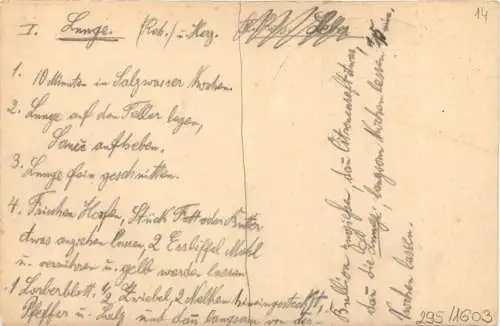 I. Lunge. (Reh.) u. Herz.
14
1. 10 Minuten in Salzwasser kochen.
2. Lunge auf den Teller legen,
Sauce aufheben.
3. Lunge fein geschnitten.
4. Frischen Hafen, Stück Fett oder Butter
etwas angehen lassen, 2 Esslöffel Mehl
u. verrühren u. gelb werden lassen
1 Lorberblatt, 1/2 Zwiebel, 2 Nelken hineingesteckt,
Pfeffer u. Salz und dau langsam von der
Bullion zugießen, dau Citronensaft etwas,
dau die Lunge, langsam kochen lassen, 10 min.
kochen lassen.
295/1603